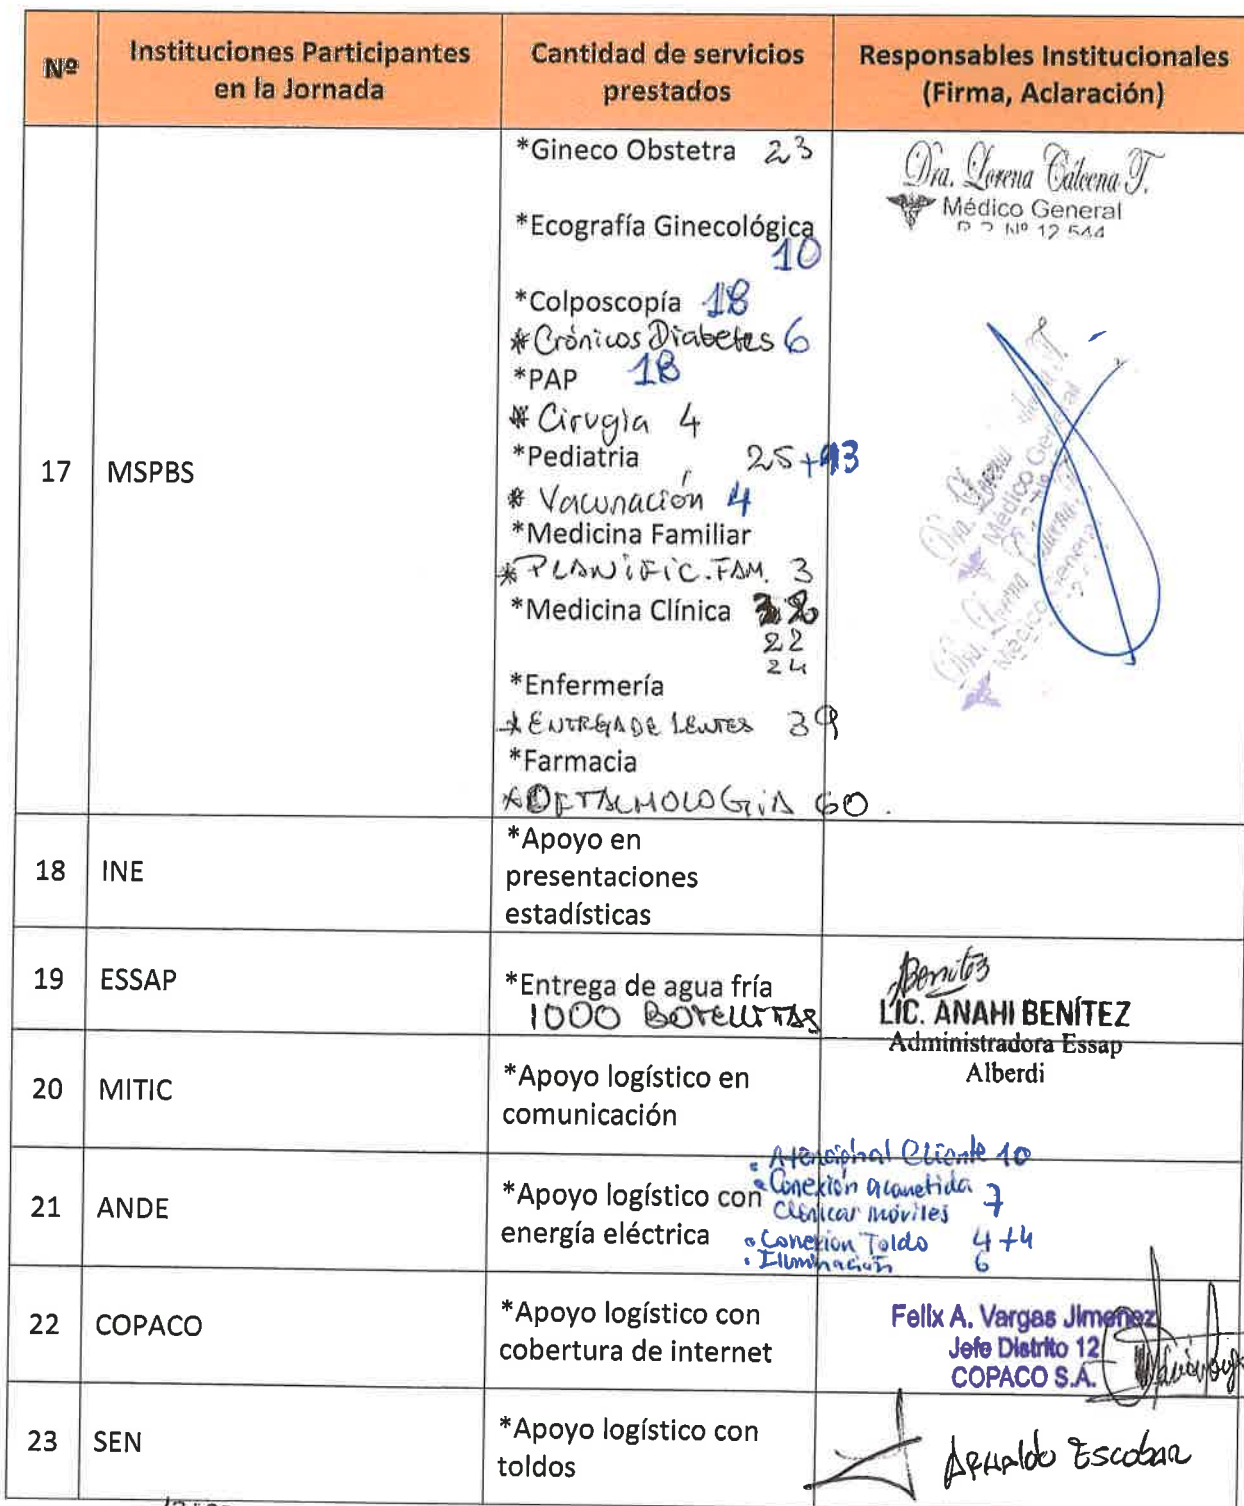 Nº
Instituciones Participantes
en la Jornada
Cantidad de servicios
prestados
Responsables Institucionales
(Firma, Aclaración)
17
MSPBS
*Gineco Obstetra 23
*Ecografía Ginecológica
10
*Colposcopía 18
*Crónicos Diabetes 6
*PAP 18
*Cirugia 4
*Pediatria 25+13
*Vacunación 4
*Medicina Familiar
*PLANIFIC. FAM. 3
*Medicina Clínica
22
24
*Enfermería
*ENTREGA DE LENTES 39
*Farmacia
*OFTALMOLOGIA 60.
Dra. Lorena Cálcena T.
Médico General
Nº 12.544
Dra. Lorena
Médico General
Dra. Lorena
Médico General
18
INE
*Apoyo en
presentaciones
estadísticas
19
ESSAP
*Entrega de agua fría
1000 BOTELLITAS
Benitez
LIC. ANAHI BENÍTEZ
Administradora Essap
Alberdi
20
MITIC
*Apoyo logístico en
comunicación
21
ANDE
*Apoyo logístico con
energía eléctrica
• Atención al Cliente 10
• Conexión acometida 7
Clinicas móviles
• Conexion Toldo 4+4
• Iluminación 6
22
COPACO
*Apoyo logístico con
cobertura de internet
Felix A. Vargas Jimenez
Jefe Distrito 12
COPACO S.A.
23
SEN
*Apoyo logístico con
toldos
Arnaldo Escobar